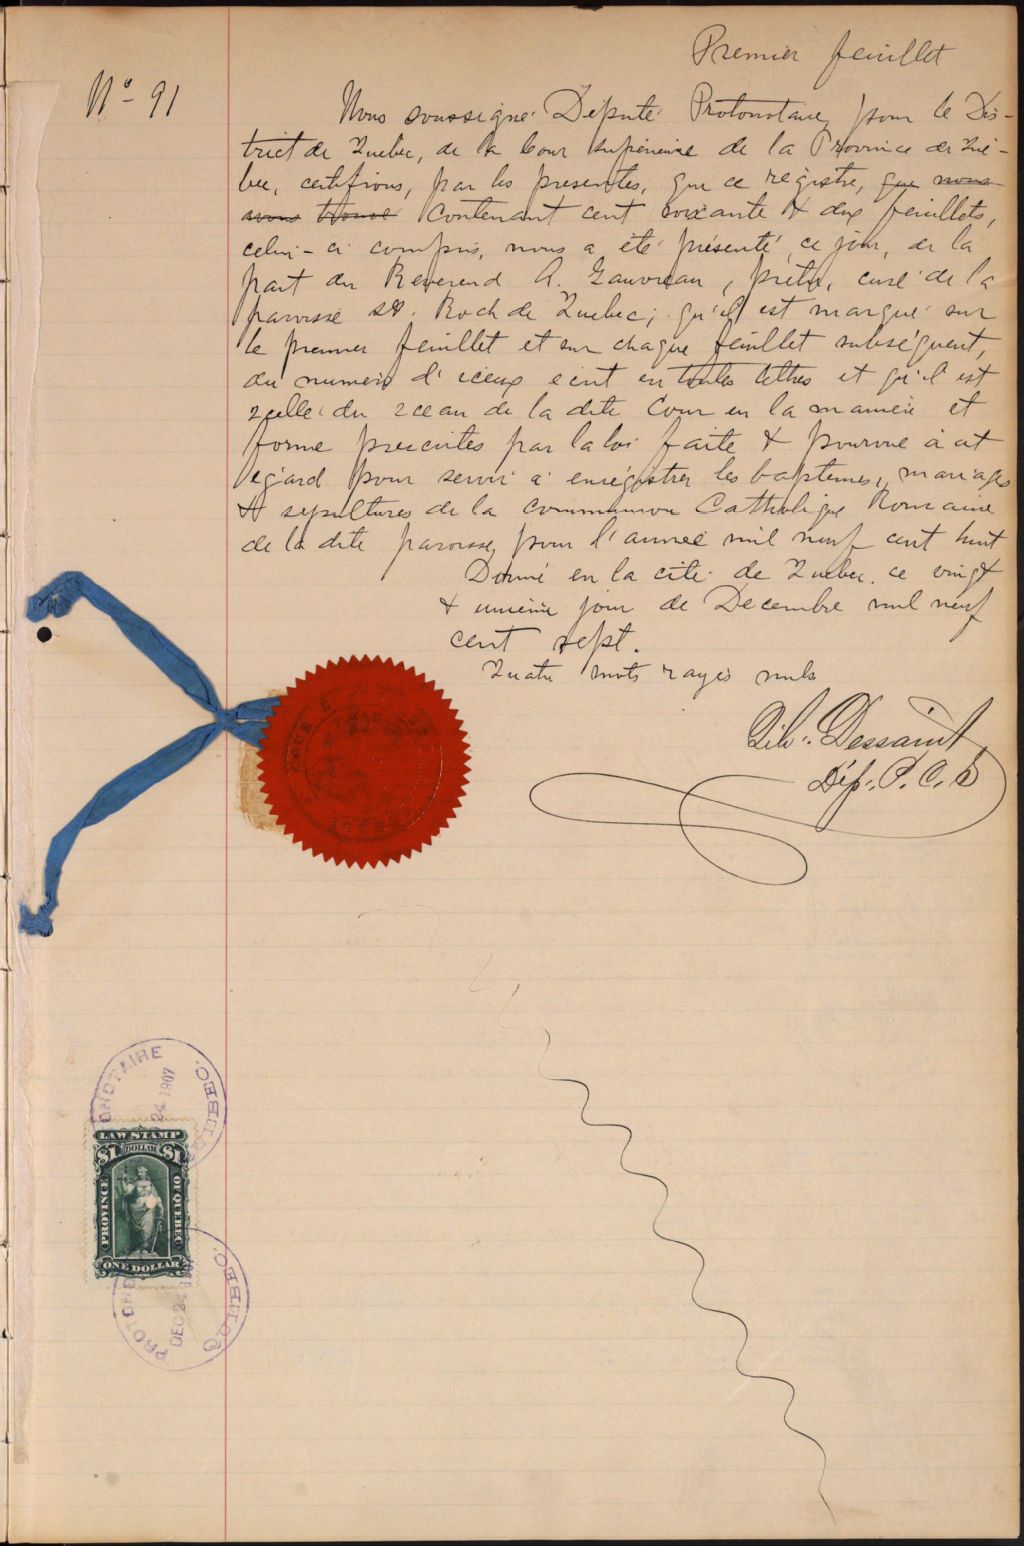 Premier feuillet
No 91
Nous soussigné Député Protonotaire, pour le Dis-
trict de Québec, de la Cour supérieure de la Province de Qué-
bec, certifions, par les présentes, que ce registre, que nous
avons trouvé contenant cent soixante & dix feuillets,
celui-ci compris, nous a été présenté, ce jour, de la
part du Révérend A. Gauvreau, prêtre, curé de la
paroisse St. Roch de Québec; qu'il est marqué sur
le premier feuillet et sur chaque feuillet subséquent,
du numéro d'iceux écrit en toutes lettres et qu'il est
scellé du sceau de la dite Cour en la manière et
forme prescrites par la loi faite & pourvue à cet
égard pour servir à enregistrer les baptêmes, mariages
& sépultures de la communion Catholique Romaine
de la dite paroisse, pour l'année mil neuf cent huit
Donné en la cité de Québec. ce vingt
& unième jour de Décembre mil neuf
cent sept.
Quatre mots rayés nuls
Dessaint
Dép. P. C. S
PROTONOTAIRE QUEBEC.
24 1907
LAW STAMP
$1 DOLLAR $1
PROVINCE OF QUEBEC
ONE DOLLAR
PROTONO QUEBEC.
DEC 24 1907